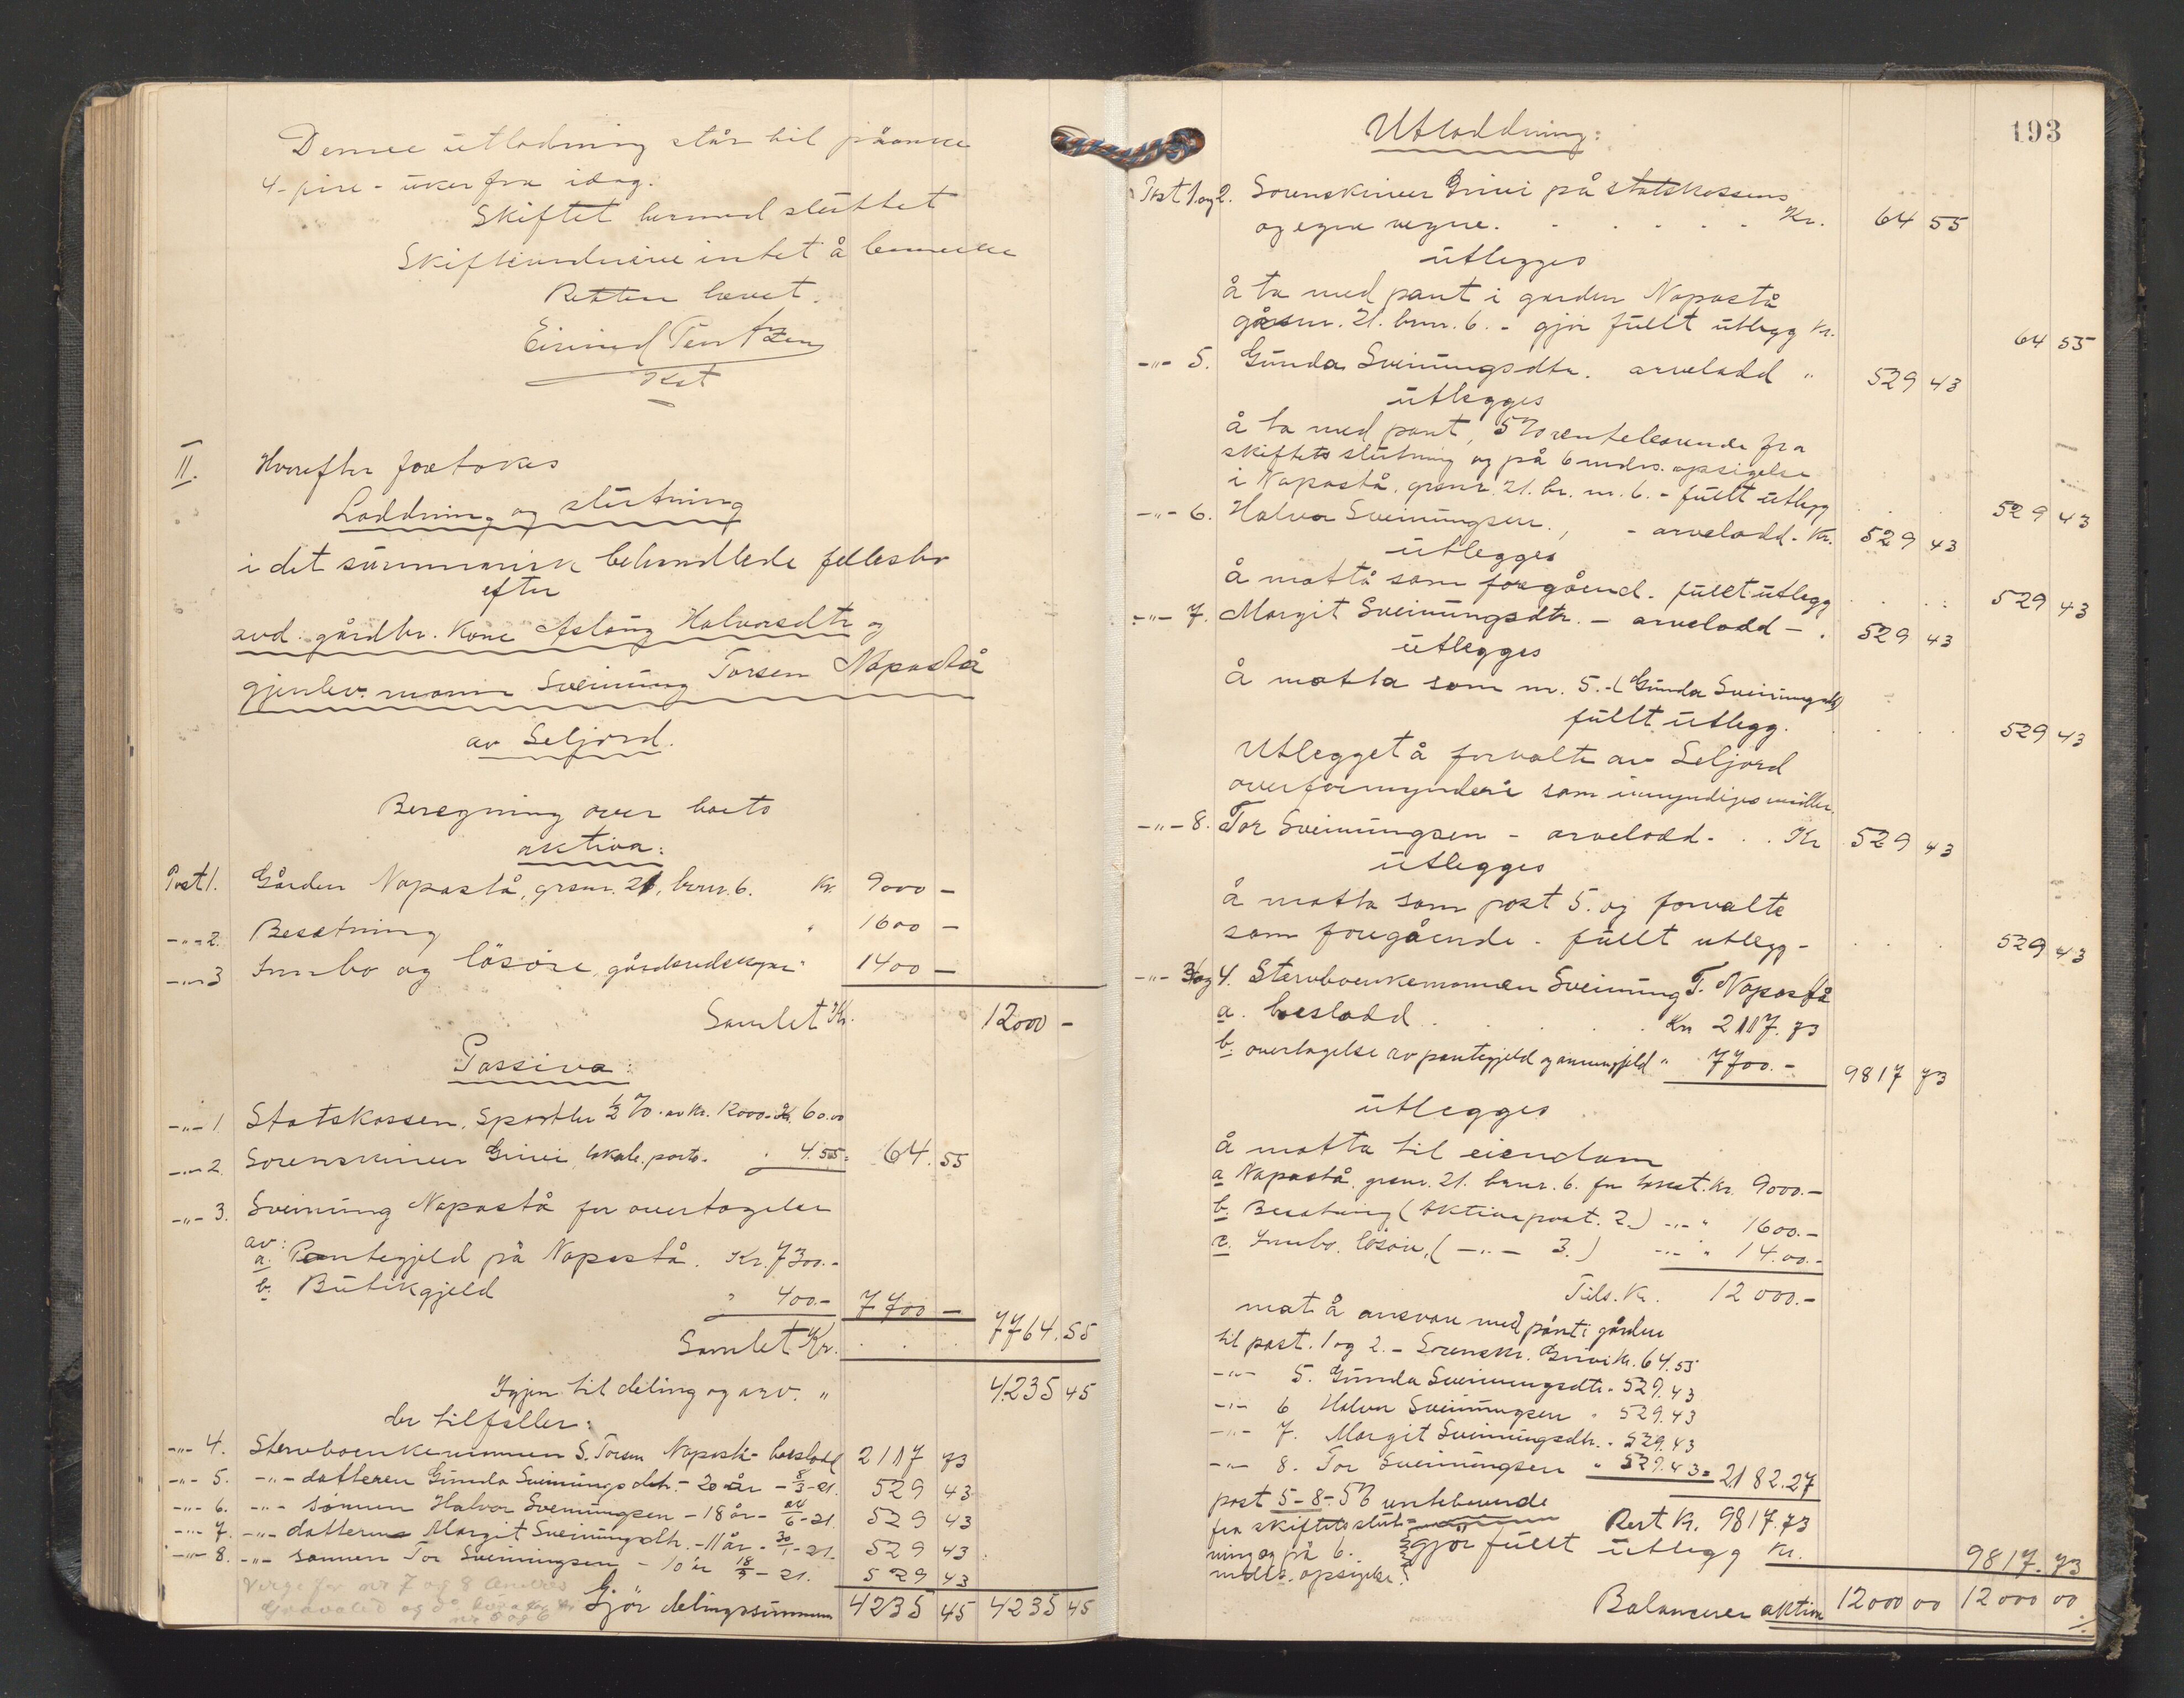 Denne utlodning står til påanke
4 - fire - uker fra idag.
Skiftet hermed sluttet
Skiftevidnene intet å bemerke
Retten hævet.
Eivind
fm
kst
II. Hvorefter foretokes
Loddning og slutning
i det summarisk behandlede fellesbo
efter
avd. gårdbr. kone Aslaug Halvorsdtr og
gjenlev. mann Sveinung Torsen Napastå
av Seljord.
Beregning over boets
aktiva:
Post 1. Gården Napastå, grsnr. 21, brnr. 6. Kr. 9000 -
-"- 2. Besetning " 1600 -
-"- 3 Innbo og løsøre, gårdsredskaper " 1400 -
Samlet Kr. 12000 -
Passiva:
-"- 1. Statskassen, sportler ½ % av Kr. 12000 - Kr. 60.00
-"- 2. Sorenskriver Grivi, lokale, porto. " 4.55 = 64.55
-"- 3. Sveinung Napastå for overtagelse
av:
a. Pantegjeld på Napastå. Kr. 7300.-
b. Butikgjeld " 400.- 7700 -
Samlet Kr. . . . 7764.55
Igjen til deling og arv. " 4235 45
der tilfaller:
-"- 4. Stervboenkemannen S. Torsen Napastå - boeslodd 2117 73
-"- 5. -"- datteren Gunda Sveinungsdtr. - 20 år - 8/3 - 21. 529 43
-"- 6. -"- sønnen Halvor Sveinungsen - 18 år - 24/6 - 21. 529 43
-"- 7. -"- datteren Margit Sveinungsdtr. - 11 år - 30/1 - 21. 529 43
-"- 8. -"- sønnen Tor Sveinungsen - 10 år 18/5 - 21. 529 43
Verge for nr 7 og 8
og
nr 5 og 6
Gjør delingssummen 4235 45 4235 45
193
Utloddning:
Post 1 og 2. Sorenskriver Grivi på statskassens
og egne vegne. . . . . . . Kr. 64 55
utlegges
å ta med pant i garden Napastå
gårsnr. 21. brnr. 6. - gjør fullt utlegg Kr. 64 55
-"- 5. Gunda Sveinungsdtr. arvelodd " 529 43
utlegges
å ta med pant, 5 % rentebærende fra
skiftets slutning og på 6 mdrs. opsigelse
i Napastå, grsnr. 21. br. nr. 6. - fullt utlegg 529 43
-"- 6. Halvor Sveinungsen, - arvelodd - Kr. 529 43
utlegges
å motta som foregåend. fullt utlegg . . . 529 43
-"- 7. Margit Sveinungsdtr. - arvelodd - . 529 43
utlegges
å motta som nr. 5. - (Gunda Sveinungsdtr)
fullt utlegg. . . . . 529 43
Utlegget å forvalte av Seljord
overformynderi som umyndiges midler.
-"- 8. Tor Sveinungsen - arvelodd - . . Kr 529 43
utlegges
å motta som post 5. og forvalte
som foregående - fullt utlegg - . . . 529 43
-"- 3 og 4. Stervboenkemannen Sveinung T. Napastå
a. boeslodd . . . . . Kr 2117.73
b. overtagelse av pantegjeld og annen gjeld " 7700.- 9817 73
utlegges
å motta til eiendom
a Napastå, grsnr. 21. brnr. 6. for takst. Kr. 9000.-
b. Besetning (Aktiva post. 2.) -"- " 1600.-
c. Innbo, løsøre, ( -"- 3.) -"- " 14.00.-
Tils. Kr. 12000.-
mot å ansvare med pant i gården
til post. 1 og 2. - Sorenskr. Grivi Kr. 64.55
-"- 5. Gunda Sveinungsdtr. - 529.43
-"- 6 Halvor Sveinungsen " 529.43
-"- 7. Margit Sveinungsdtr. - 529.43
-"- 8. Tor Sveinungsen " 529.43 = 2182.27
post 5 - 8 - 5 % rentebærende
fra skiftets slut- Rest Kr. 9817.73
ning og på 6. gjør fullt utlegg Kr. 9817.73
mdrs. opsigelse.
Balancerer aktiva 12000 00 12000 00